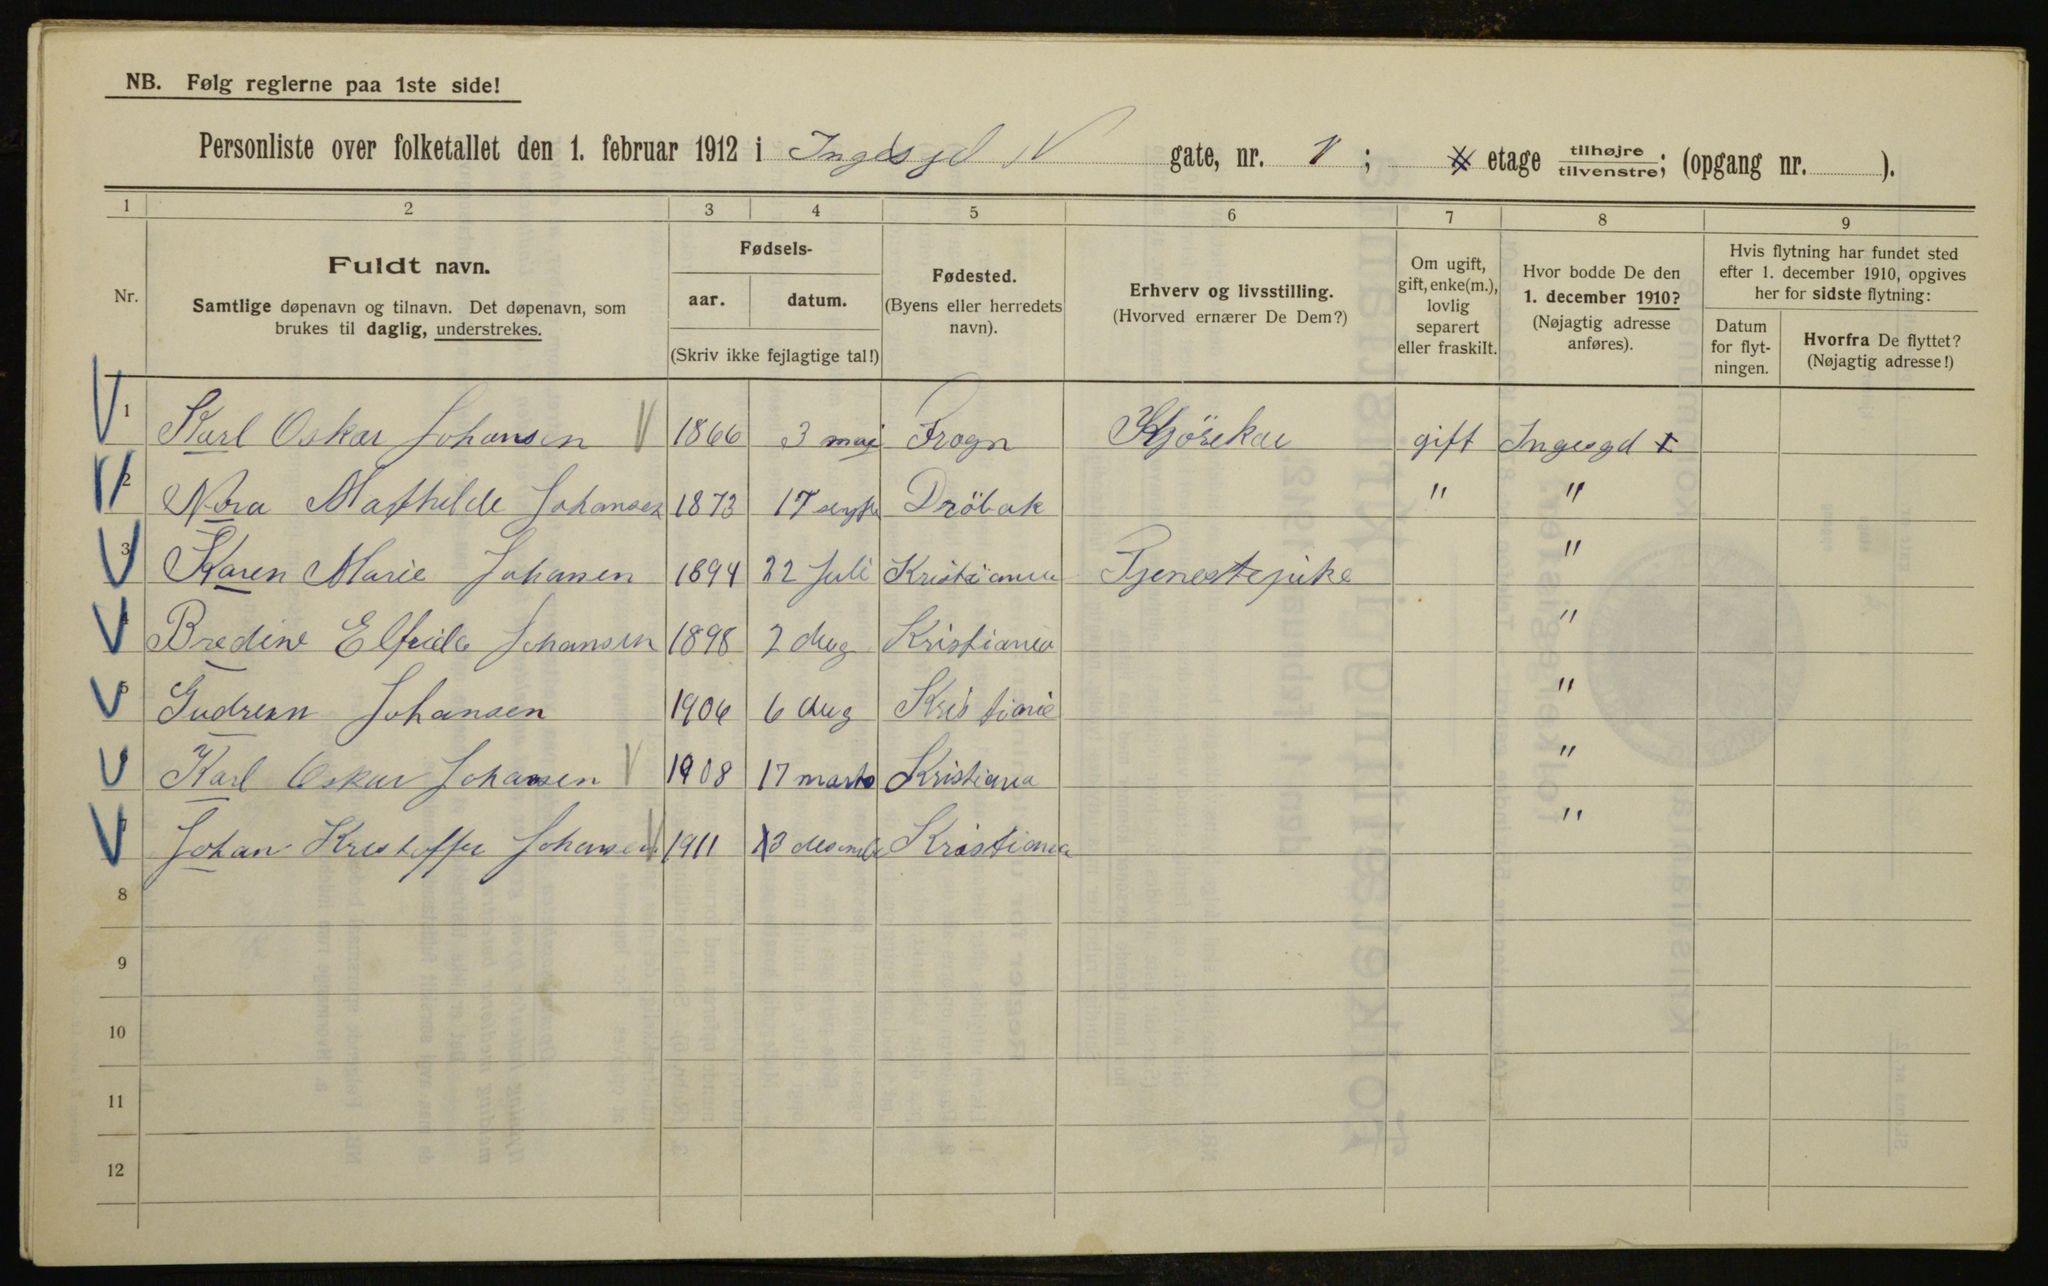 NB. Følg reglerne paa 1ste side!
Personliste over folketallet den 1. februar 1912 i Ingesgd gate, nr. 1; etage tilhøjre/tilvenstre; (opgang nr. ).
1 2 3 4 5 6 7 8 9
Nr.
Fuldt navn.
Samtlige døpenavn og tilnavn. Det døpenavn, som
brukes til daglig, understrekes.
Fødsels-
aar. datum.
(Skriv ikke fejlagtige tal!)
Fødested.
(Byens eller herredets
navn).
Erhverv og livsstilling.
(Hvorved ernærer De Dem?)
Om ugift,
gift, enke(m.),
lovlig
separert
eller fraskilt.
Hvor bodde De den
1. december 1910?
(Nøjagtig adresse
anføres).
Hvis flytning har fundet sted
efter 1. december 1910, opgives
her for sidste flytning:
Datum
for flyt-
ningen.
Hvorfra De flyttet?
(Nøjagtig adresse!)
1 Karl Oskar Johansen 1866 3 mai Frogn Kjörekar gift Ingesgd 1
2 Nora Mathilde Johansen 1873 17 Dröbak " "
3 Karen Marie Johansen 1894 22 Juli Kristiania Tjenestepike "
4 Bredine Elfrida Johansen 1898 2 Aug Kristiania "
5 Gudrunn Johansen 1906 6 Aug Kristiania "
6 Karl Oskar Johansen 1908 17 marts Kristiana "
7 Johan Kristoffer Johansen 1911 13 desember Kristiania "
8
9
10
11
12